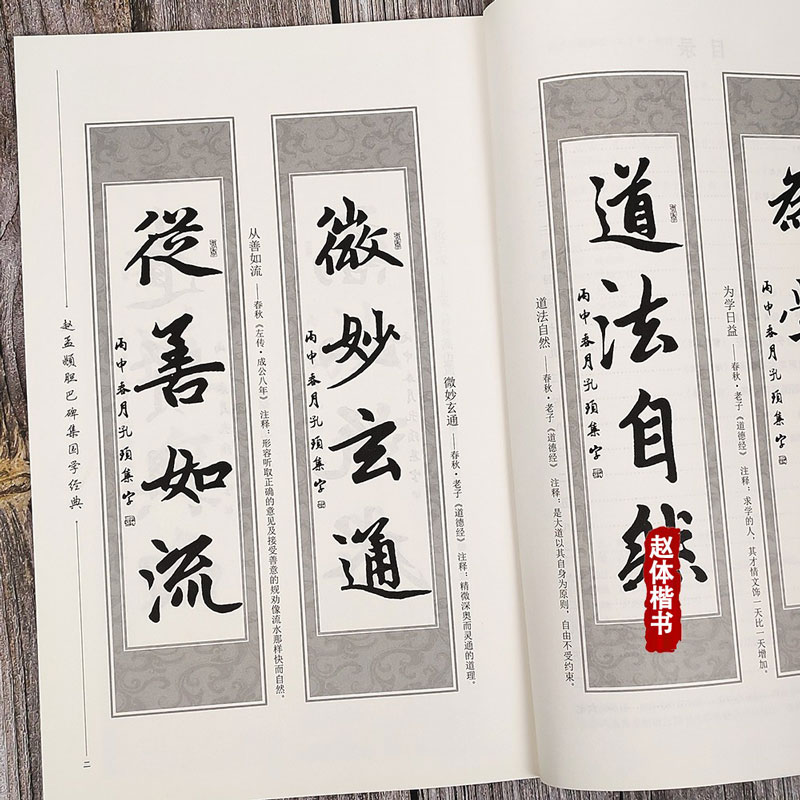 丙申春月孔頊集字
为学日益 ——春秋·老子《道德经》 注释：求学的人，其才情文饰一天比一天增加。
道法自然
丙申春月孔頊集字
道法自然 ——春秋·老子《道德经》 注释：是大道以其自身为原则，自由不受约束。
赵体楷书
微妙玄通 ——春秋·老子《道德经》 注释：精微深奥而灵通的道理。
微妙玄通
丙申春月孔頊集字
从善如流 ——春秋《左传·成公八年》 注释：形容听取正确的意见及接受善意的规劝像流水那样快而自然。
從善如流
丙申春月孔頊集字
赵孟頫胆巴碑集国学经典
二